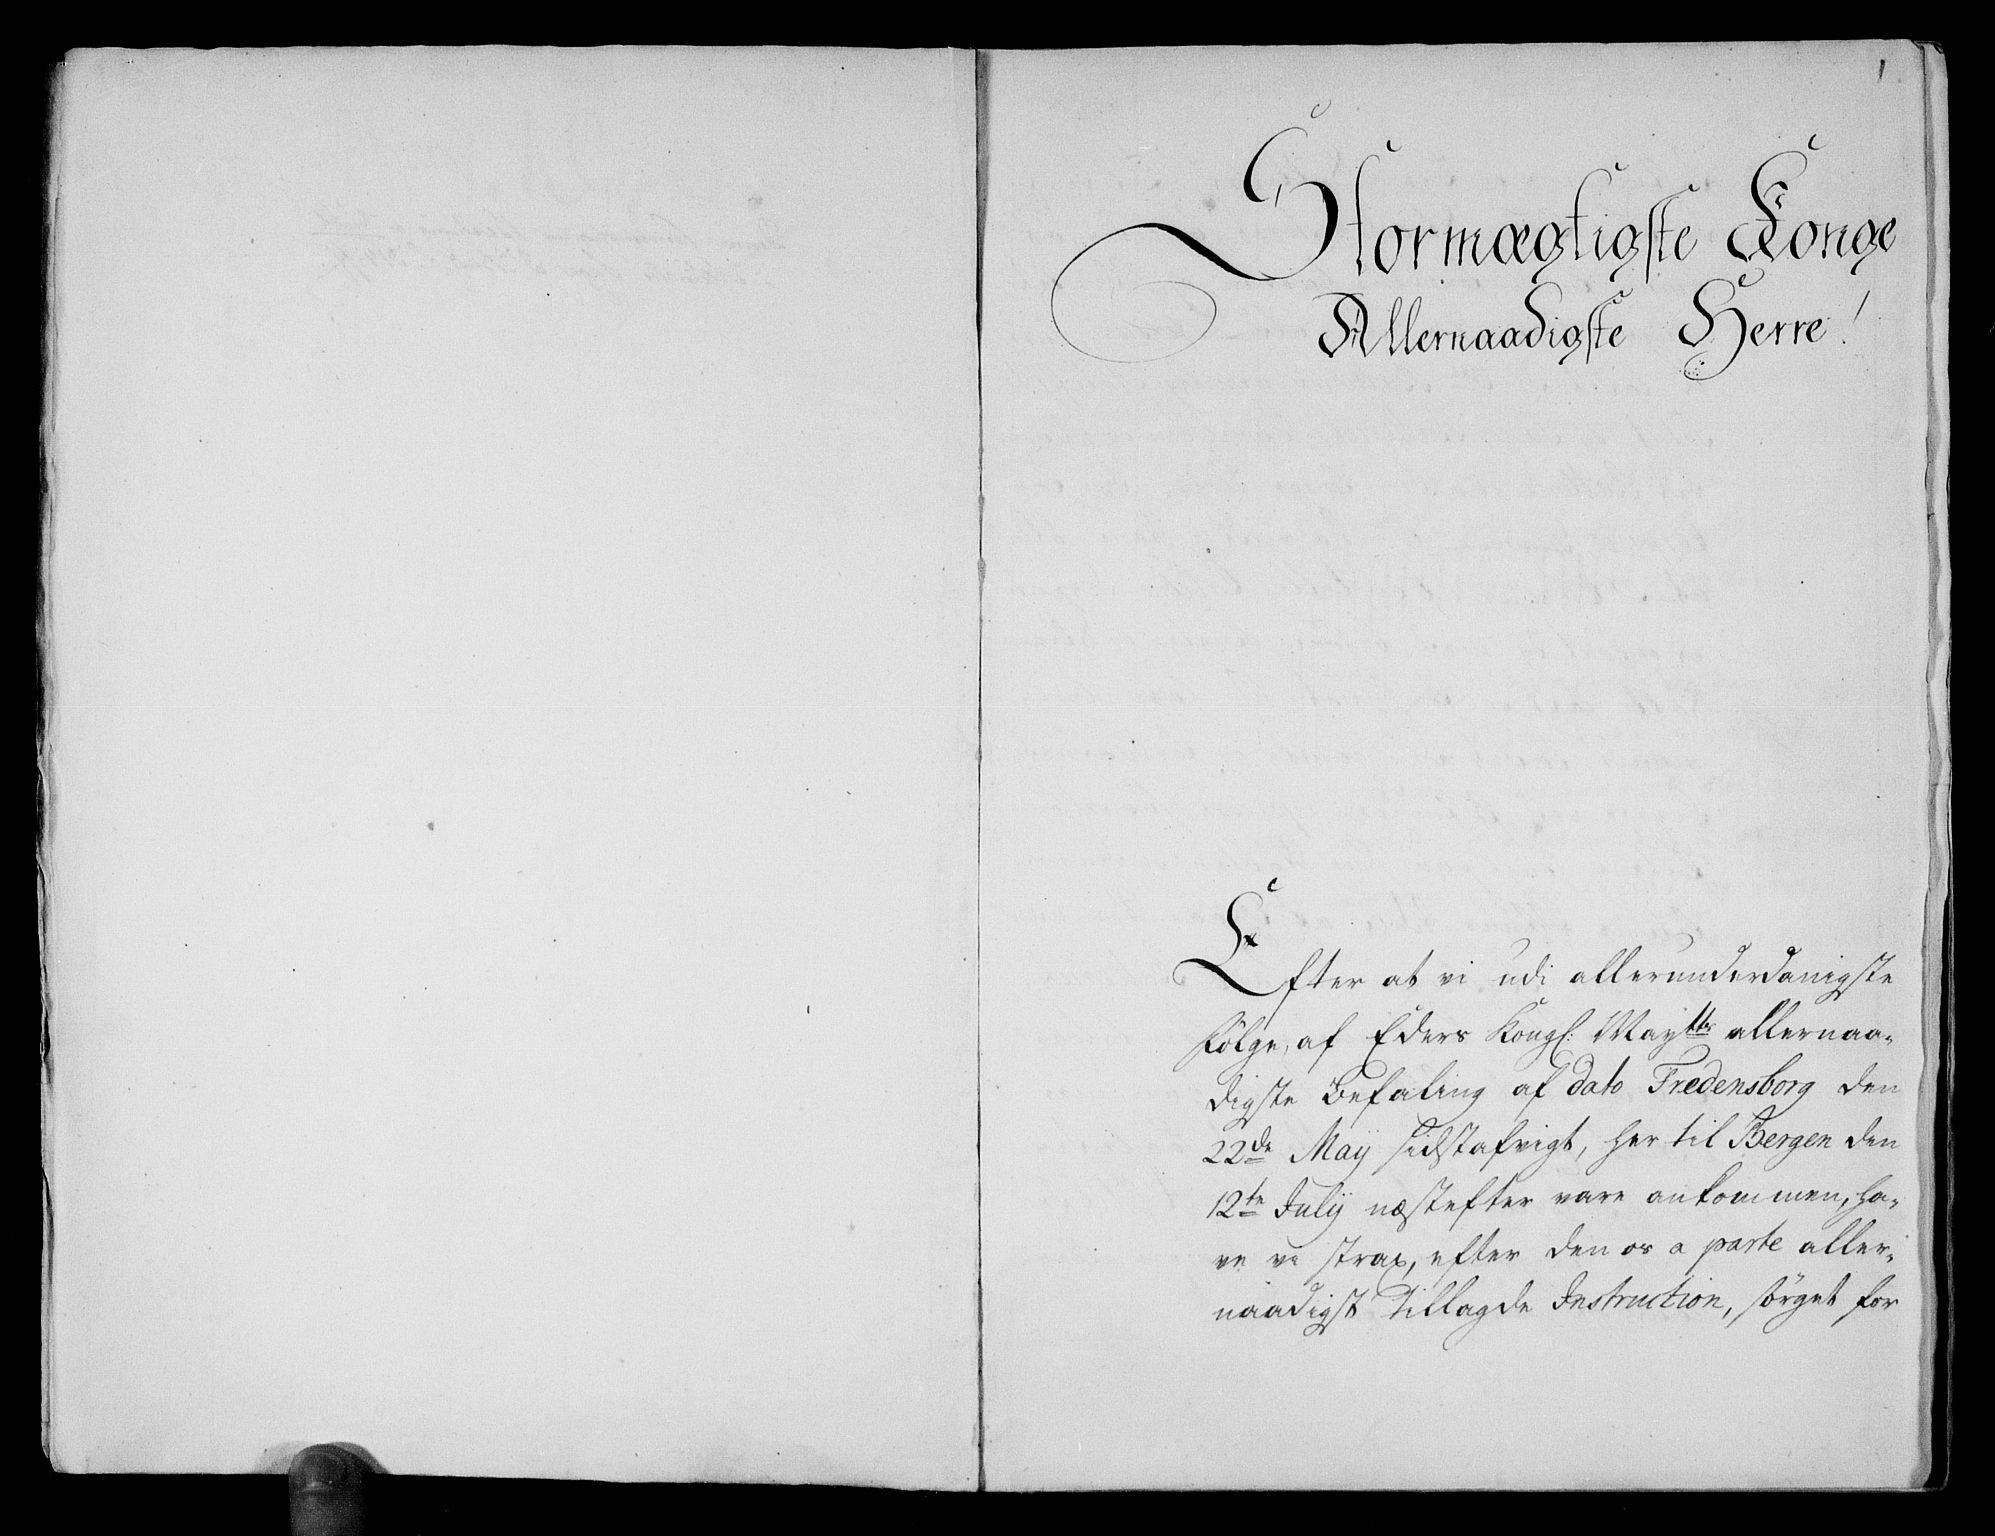 1
Stormægtigste Konge
Allernaadigste Herre!
Efter at vi udi allerunderdanigste
følge, af Eders Kongl: Mayttes allernaa-
digste befaling af dato Fredensborg den
22de Maÿ sidstafvigt, her til Bergen den
12te Julÿ næstefter vare ankommen, ha-
ve vi strax, efter den os a parte aller-
naadigst tillagde Instruction, sørget for